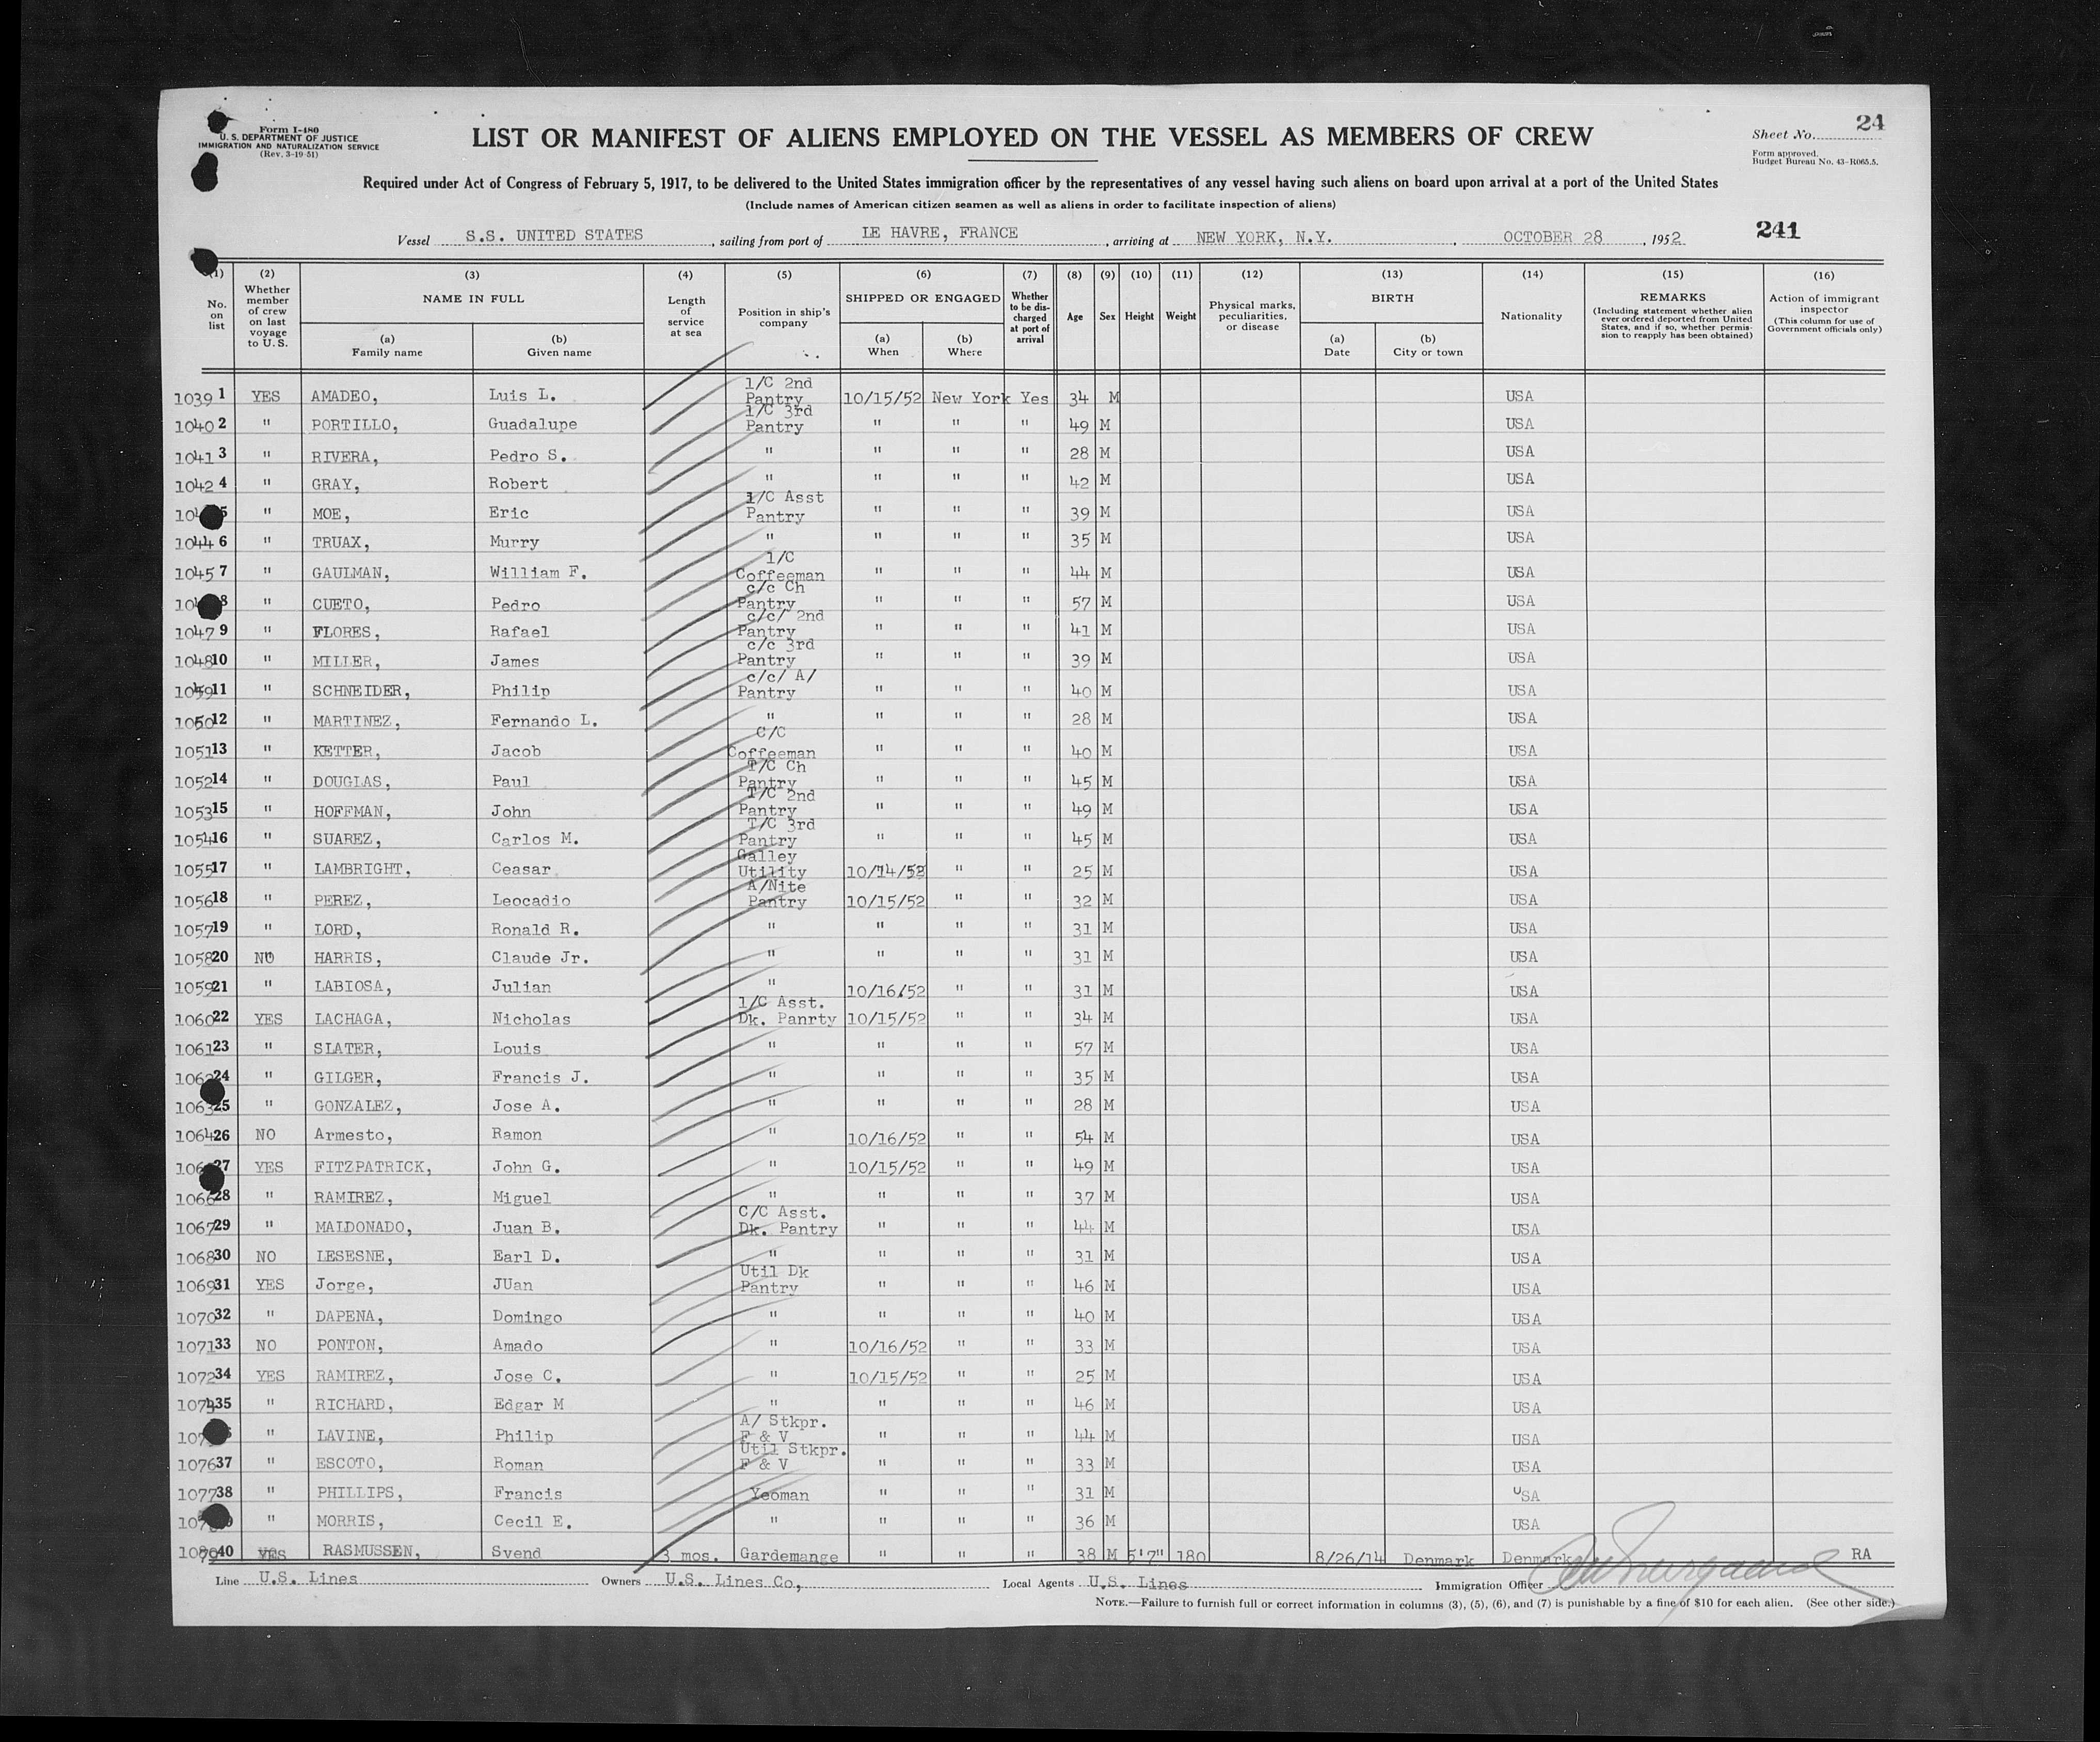 24
Form I-480
U. S. DEPARTMENT OF JUSTICE
IMMIGRATION AND NATURALIZATION SERVICE
(Rev. 3-19-51)
LIST OR MANIFEST OF ALIENS EMPLOYED ON THE VESSEL AS MEMBERS OF CREW
Sheet No.
Form approved.
Budget Bureau No. 43-R065.5.
Required under Act of Congress of February 5, 1917, to be delivered to the United States immigration officer by the representatives of any vessel having such aliens on board upon arrival at a port of the United States
(Include names of American citizen seamen as well as aliens in order to facilitate inspection of aliens)
241
Vessel S.S. UNITED STATES, sailing from port of LE HAVRE, FRANCE, arriving at NEW YORK, N.Y., OCTOBER 28, 1952
(1) (2) (3) (4) (5) (6) (7) (8) (9) (10) (11) (12) (13) (14) (15) (16)
No. on list
Whether member of crew on last voyage to U. S.
NAME IN FULL
(a) Family name
(b) Given name
Length of service at sea
Position in ship's company
SHIPPED OR ENGAGED
(a) When
(b) Where
Whether to be discharged at port of arrival
Age Sex Height Weight
Physical marks, peculiarities, or disease
BIRTH
(a) Date
(b) City or town
Nationality
REMARKS
(Including statement whether alien ever ordered deported from United States, and if so, whether permission to reapply has been obtained)
Action of immigrant inspector
(This column for use of Government officials only)
1039 1 YES AMADEO, Luis L. 1/C 2nd Pantry 10/15/52 New York Yes 34 M USA
1040 2 " PORTILLO, Guadalupe 1/C 3rd Pantry " " " 49 M USA
1041 3 " RIVERA, Pedro S. " " " " 28 M USA
1042 4 " GRAY, Robert " " " " 42 M USA
5 " MOE, Eric 1/C Asst Pantry " " " 39 M USA
1044 6 " TRUAX, Murry " " " " 35 M USA
1045 7 " GAULMAN, William F. 1/C Coffeeman " " " 44 M USA
8 " CUETO, Pedro c/c Ch Pantry " " " 57 M USA
1047 9 " FLORES, Rafael c/c/ 2nd Pantry " " " 41 M USA
1048 10 " MILLER, James c/c 3rd Pantry " " " 39 M USA
11 " SCHNEIDER, Philip c/c/ A/ Pantry " " " 40 M USA
1050 12 " MARTINEZ, Fernando L. " " " " 28 M USA
1051 13 " KETTER, Jacob C/C Coffeeman " " " 40 M USA
1052 14 " DOUGLAS, Paul T/C Ch Pantry " " " 45 M USA
1053 15 " HOFFMAN, John T/C 2nd Pantry " " " 49 M USA
1054 16 " SUAREZ, Carlos M. T/C 3rd Pantry " " " 45 M USA
1055 17 " LAMBRIGHT, Ceasar Galley Utility 10/14/52 " " 25 M USA
1056 18 " PEREZ, Leocadio A/Nite Pantry 10/15/52 " " 32 M USA
1057 19 " LORD, Ronald R. " " " " 31 M USA
1058 20 NO HARRIS, Claude Jr. " " " " 31 M USA
1059 21 " LABIOSA, Julian " 10/16/52 " " 31 M USA
1060 22 YES LACHAGA, Nicholas 1/C Asst. Dk. Panrty 10/15/52 " " 34 M USA
1061 23 " SLATER, Louis " " " " 57 M USA
1062 24 " GILGER, Francis J. " " " " 35 M USA
1063 25 " GONZALEZ, Jose A. " " " " 28 M USA
1064 26 NO Armesto, Ramon " 10/16/52 " " 54 M USA
27 YES FITZPATRICK, John G. " 10/15/52 " " 49 M USA
1066 28 " RAMIREZ, Miguel " " " " 37 M USA
1067 29 " MALDONADO, Juan B. C/C Asst. Dk. Pantry " " " 44 M USA
1068 30 NO LESESNE, Earl D. " " " " 31 M USA
1069 31 YES Jorge, JUan Util Dk Pantry " " " 46 M USA
1070 32 " DAPENA, Domingo " " " " 40 M USA
1071 33 NO PONTON, Amado " 10/16/52 " " 33 M USA
1072 34 YES RAMIREZ, Jose C. " 10/15/52 " " 25 M USA
35 " RICHARD, Edgar M " " " " 46 M USA
" LAVINE, Philip A/ Stkpr. F & V " " " 44 M USA
1076 37 " ESCOTO, Roman Util Stkpr. F & V " " " 33 M USA
1077 38 " PHILLIPS, Francis Yeoman " " " 31 M USA
" MORRIS, Cecil E. " " " " 36 M USA
40 YES RASMUSSEN, Svend 3 mos. Gardemange " " " 38 M 5'7" 180 8/26/14 Denmark Denmark RA
Line U.S. Lines Owners U.S. Lines Co, Local Agents U.S. Lines Immigration Officer
NOTE.—Failure to furnish full or correct information in columns (3), (5), (6), and (7) is punishable by a fine of $10 for each alien. (See other side.)